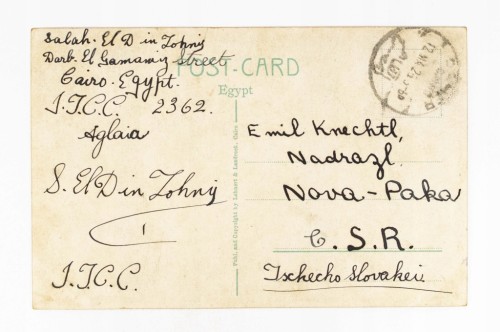 Salah. El D in Zohniy
Darb. El Gamamiz street
Cairo. Egypt.
I.T.C.C. 2362.
Aglaia
S. El D in Zohniy
I.T.C.C.
POST-CARD
Egypt
Publ. and Copyright by Lehnert & Landrock, Cairo
Emil Knechtl,
Nadrazl.
Nova-Paka
C. S. R.
Tschecho Slovakei